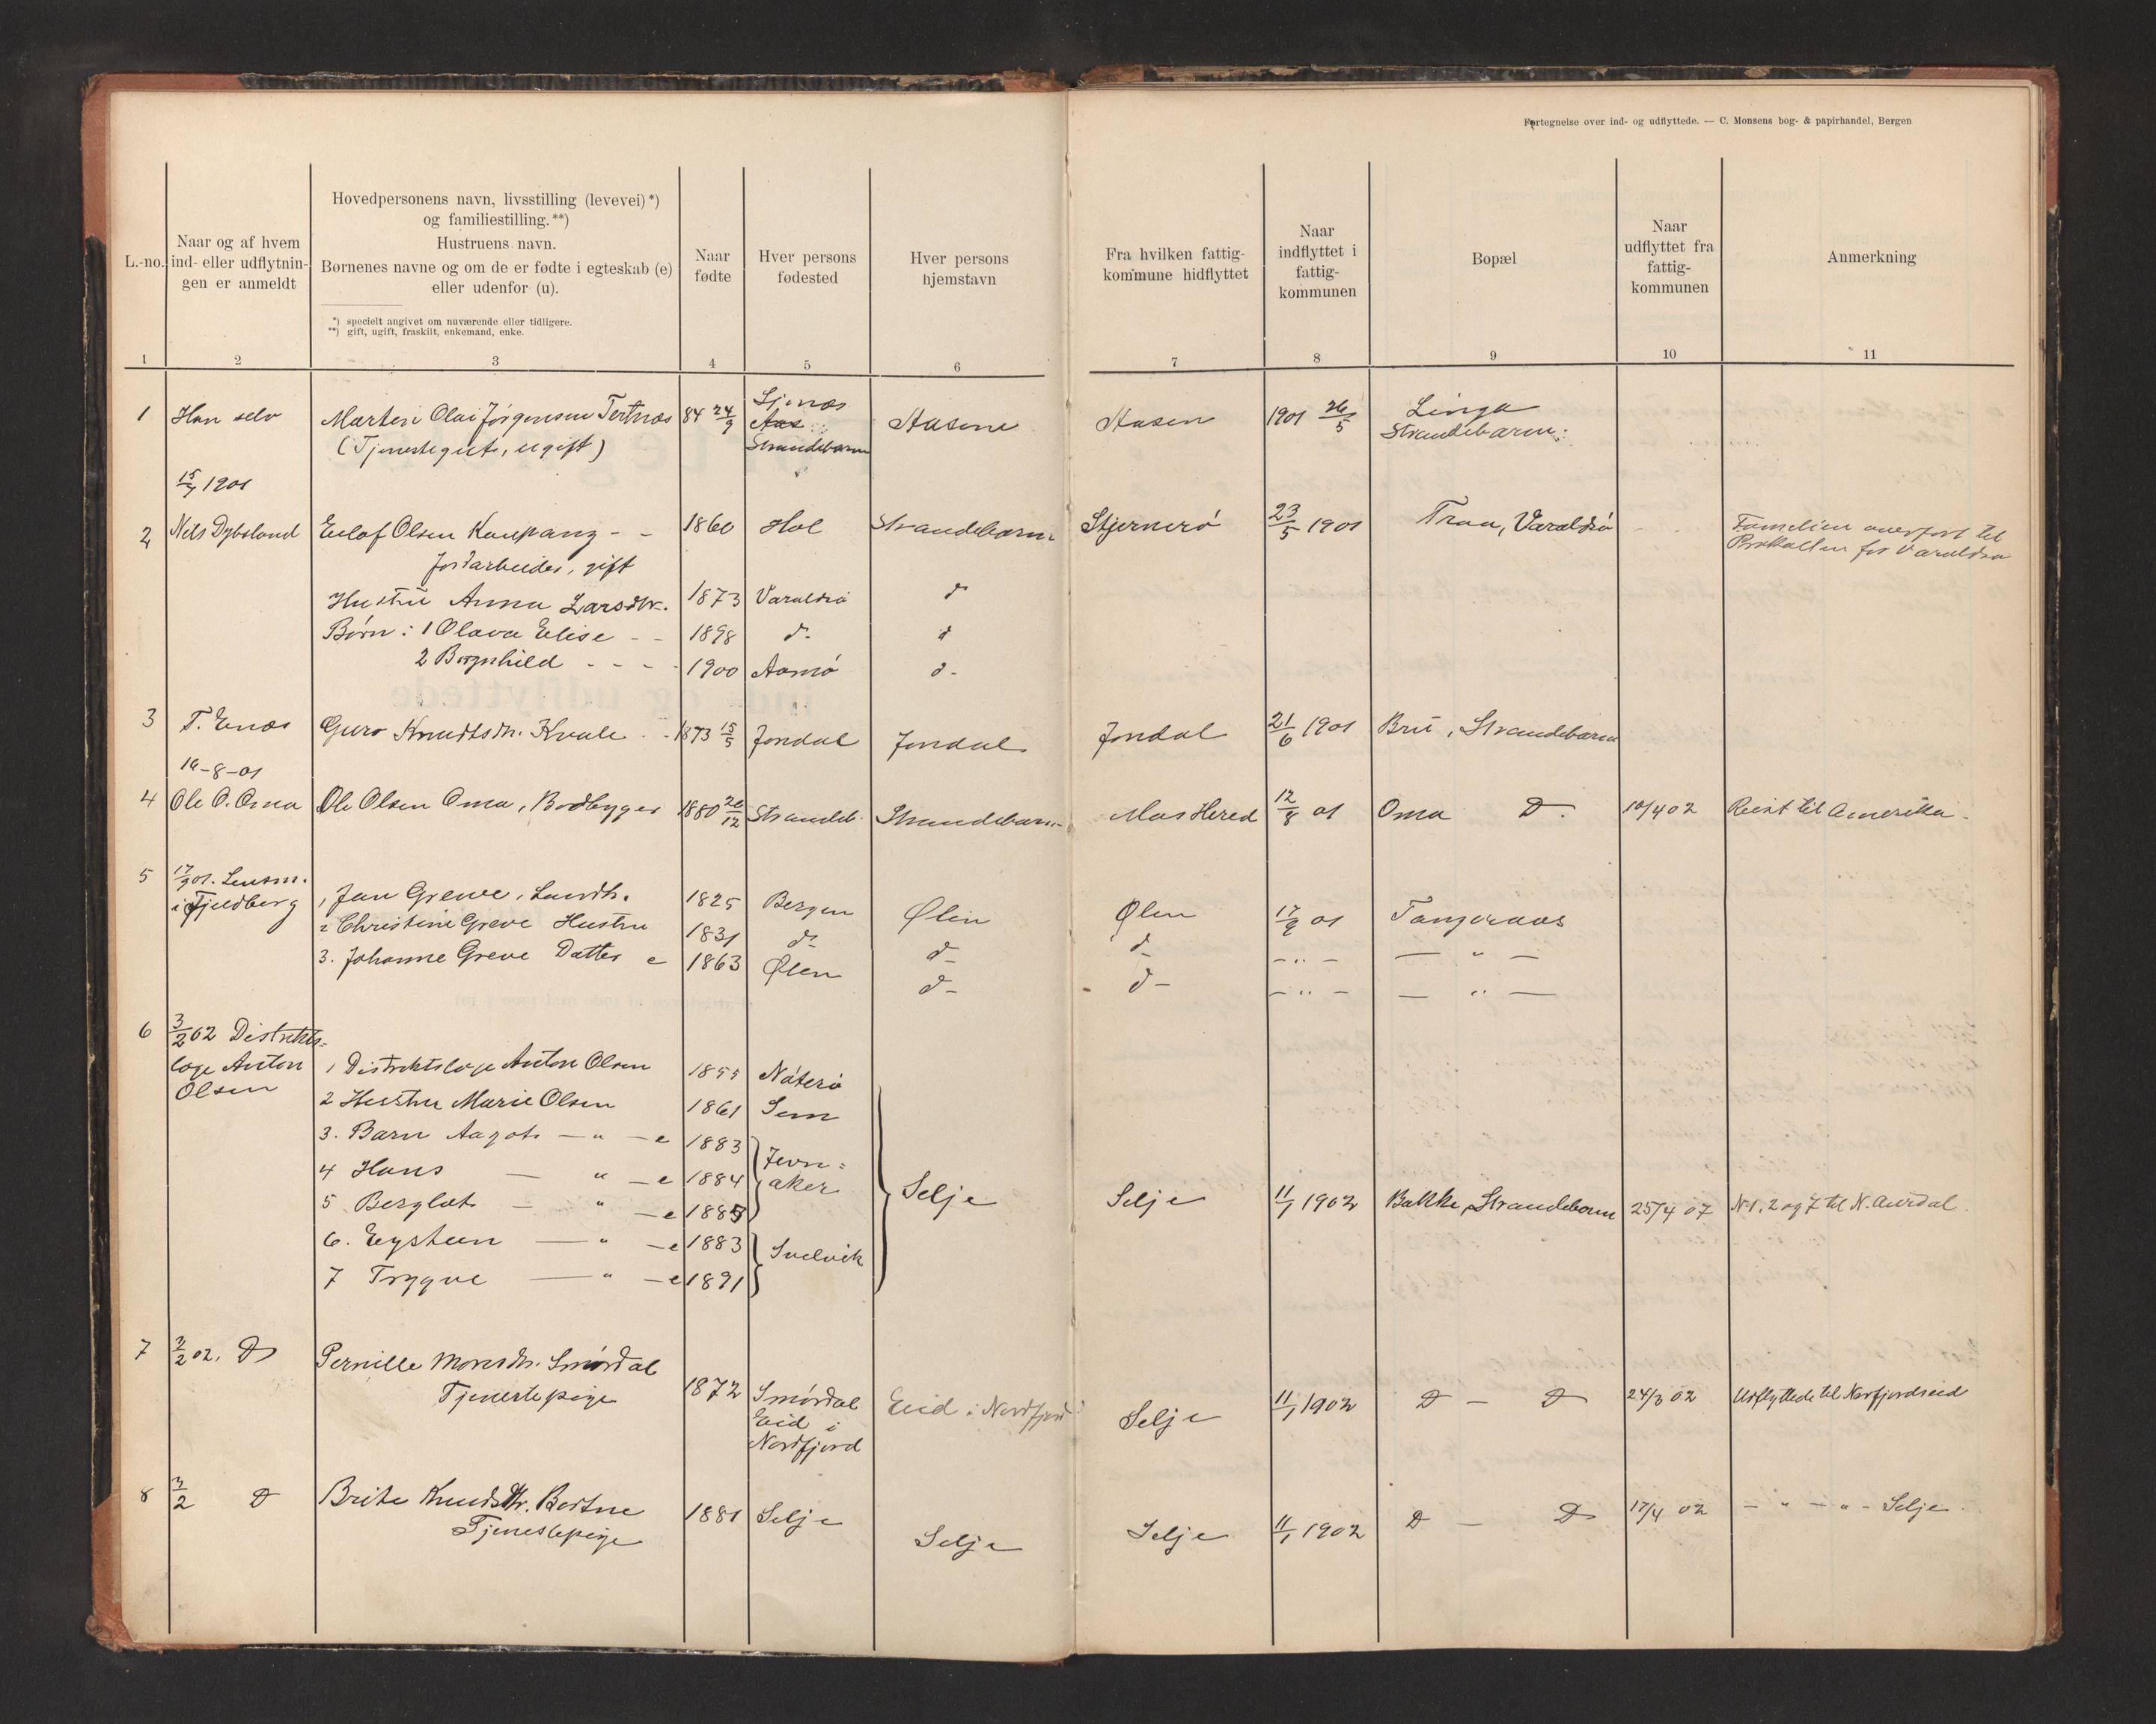 Fortegnelse over ind- og udflyttede. — C. Monsens bog- & papirhandel, Bergen
L.-no.
Naar og af hvem
ind- eller udflytnin-
gen er anmeldt
Hovedpersonens navn, livsstilling (levevei) *)
og familiestilling. **)
Hustruens navn.
Børnenes navne og om de er fødte i egteskab (e)
eller udenfor (u).
*) specielt angivet om nuværende eller tidligere.
**) gift, ugift, fraskilt, enkemand, enke.
Naar
fødte
Hver persons
fødested
Hver persons
hjemstavn
Fra hvilken fattig-
kommune hidflyttet
Naar
indflyttet i
fattig-
kommunen
Bopæl
Naar
udflyttet fra
fattig-
kommunen
Anmerkning
1 2 3 4 5 6 7 8 9 10 11
1 Han selv Marten Olai Jørgensen Tertnæs 84 24/9 Ljonæs Aasene Aasen 1901 26/5 Linga
(Tjenestegut, ugift) Strandebarm Strandebarm
15/7 1901
2 Nils Dybsland Eilof Olsen Kaupang - - 1860 Hol Strandebarm Stjernerö 23/5 1901 Traa, Varaldsö Familien overført til
Jordarbeider, gift Protokollen for Varaldsø
Hustru Anna Larsdtr. 1873 Varaldsö do
Børn: 1 Olava Elise - - 1898 do do
2 Borgnhild - - - - 1900 Aamö do
3 T. Enæs Guro Knudtsdtr. Kvale - - 1873 15/5 Jondal Jondal Jondal 21/6 1901 Bru, Strandebarm
16-8-01
4 Ole O. Oma Ole Olsen Oma, Bådbygger 1880 26/12 Strandeb. Strandebarm Mos Hered 12/8 01 Oma Do. 10/4 02 Reist til Amerika.
5 17/9 01. Lensm.
i Fjeldberg 1, Jan Greve, Landh. 1825 Bergen Ølen Ølen 17/9 01 Tangeraas
2 Christine Greve Hustru 1831 do do do — " — — " —
3. Johanne Greve Datter e 1863 Ølen do do — " — — " —
6 3/2 02 Distrikts-
læge Anton 1 Distriktslæge Anton Olsen 1855 Nøterö
Olsen
2 Hustru Marie Olsen 1861 Sem
3. Barn Aagot — " — e 1883 Jevn-
4 Hans — " — e 1884 aker
5 Bergliot — " — e 1885 Selje Selje 11/1 1902 Bakke, Strandebarm 25/4 07 No 1, 2 og 7 til N. Aurdal.
6. Eystein — " — e 1883 Svelvik
7 Trygve — " — e 1891
7 3/2 02. Do Pernille Monsdtr. Smørdal
Tjenestepige 1872 Smørdal Eid i Nordfjord Selje 11/1 1902 Do — Do 24/3 02 Udflyttede til Norfjordseid
Eid i
Nordfjord
8 3/2 Do Brite Knudsdtr. Bortne 1881 Selje Selje Selje 11/1 1902 Do — Do 17/4 02 — " — " — Selje.
Tjenestepige